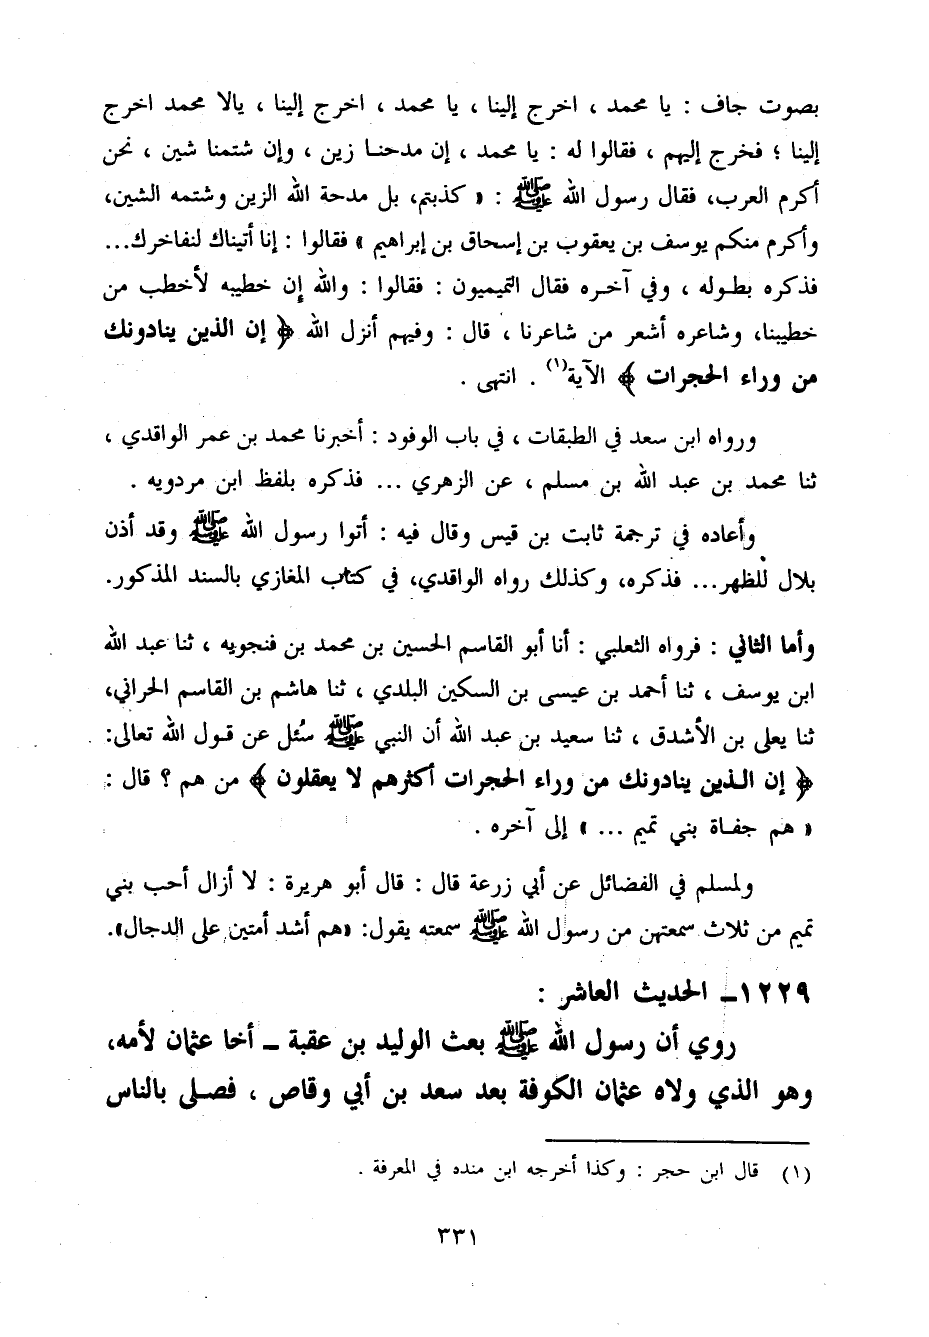 بصوت جاف : يا محمد ، اخرج إلينا ، يا محمد ، اخرج إلينا ، يالا محمد اخرج
إلينا ؛ فخرج إليهم ، فقالوا له : يا محمد ، إن مدحنـا زين ، وإن شتمنا شين ، نحن
أكرم العرب، فقال رسول الله ﷺ : « كذبتم، بل مدحة الله الزين وشتمه الشين،
وأكرم منكم يوسف بن يعقوب بن إسحاق بن إبراهيم » فقالوا : إنا أتيناك لنفاخرك...
فذكره بطـوله ، وفي آخـره فقال التميميون : فقالوا : والله إن خطيبه لأخطب من
خطيبنا، وشاعره أشعر من شاعرنا ، قال : وفيهم أنزل الله ﴿ إن الذين ينادونك
من وراء الحجرات ﴾ الآية(١) . انتهى .
ورواه ابن سعد في الطبقات ، في باب الوفود : أخبرنا محمد بن عمر الواقدي ،
ثنا محمد بن عبد الله بن مسلم ، عن الزهري ... فذكره بلفظ ابن مردويه .
وأعاده في ترجمة ثابت بن قيس وقال فيه : أتوا رسول الله ﷺ وقد أذن
بلال للظهر... فذكره، وكذلك رواه الواقدي، في كتاب المغازي بالسند المذكور.
وأما الثاني : فرواه الثعلبي : أنا أبو القاسم الحسين بن محمد بن فنجويه ، ثنا عبد الله
ابن يوسف ، ثنا أحمد بن عيسى بن السكين البلدي ، ثنا هاشم بن القاسم الحراني،
ثنا يعلى بن الأشدق ، ثنا سعيد بن عبد الله أن النبي ﷺ سُئل عن قـول الله تعالى:
﴿ إن الـذين ينادونك من وراء الحجرات أكثرهم لا يعقلون ﴾ من هم ؟ قال :
« هم جفـاة بني تميم ... » إلى آخره .
ولمسلم في الفضائل عن أبي زرعة قال : قال أبو هريرة : لا أزال أحب بني
تميم من ثلاث سمعتهن من رسول الله ﷺ سمعته يقول: «هم أشد أمتين على الدجال».
١٢٢٩ـ الحديث العاشر :
روي أن رسول الله ﷺ بعث الوليد بن عقبة ـ أخا عثمان لأمه،
وهو الذي ولاه عثمان الكوفة بعد سعد بن أبي وقاص ، فصـلى بالناس
(١) قال ابن حجر : وكذا أخرجه ابن منده في المعرفة .
٣٣١